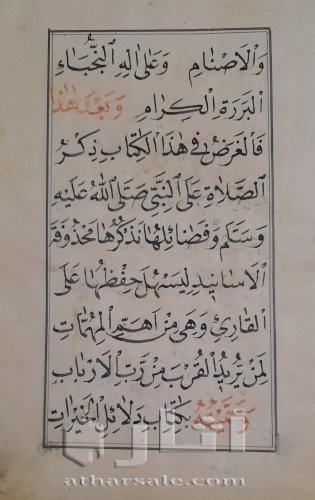 وَالْاَصْنَامِ وَعَلٰى اٰلِهِ النُّجَبَاءِ
الْبَرَرَةِ الْكِرَامِ وَبَعْدُ هٰذَا
فَالْغَرَضُ فِى هٰذَا الْكِتَابِ ذِكْرُ
الصَّلَاةِ عَلَى النَّبِىِّ صَلَّى اللهُ عَلَيْهِ
وَسَلَّمَ وَفَضَائِلِهَا نَذْكُرُهَا مَحْذُوفَةَ
الْاَسَانِيدِ لِيَسْهُلَ حِفْظُهَا عَلَى
الْقَارِئِ وَهِىَ مِنْ اَهَمِّ الْمُهِمَّاتِ
لِمَنْ يُرِيدُ الْقُرْبَ مِنْ رَبِّ الْاَرْبَابِ
وَسَمَّيْتُهُ بِكِتَابِ دَلَائِلِ الْخَيْرَاتِ
أثاري
atharsale.com